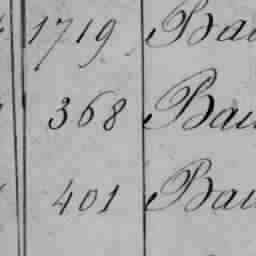 1719 Bau
368 Bau
401 Bau